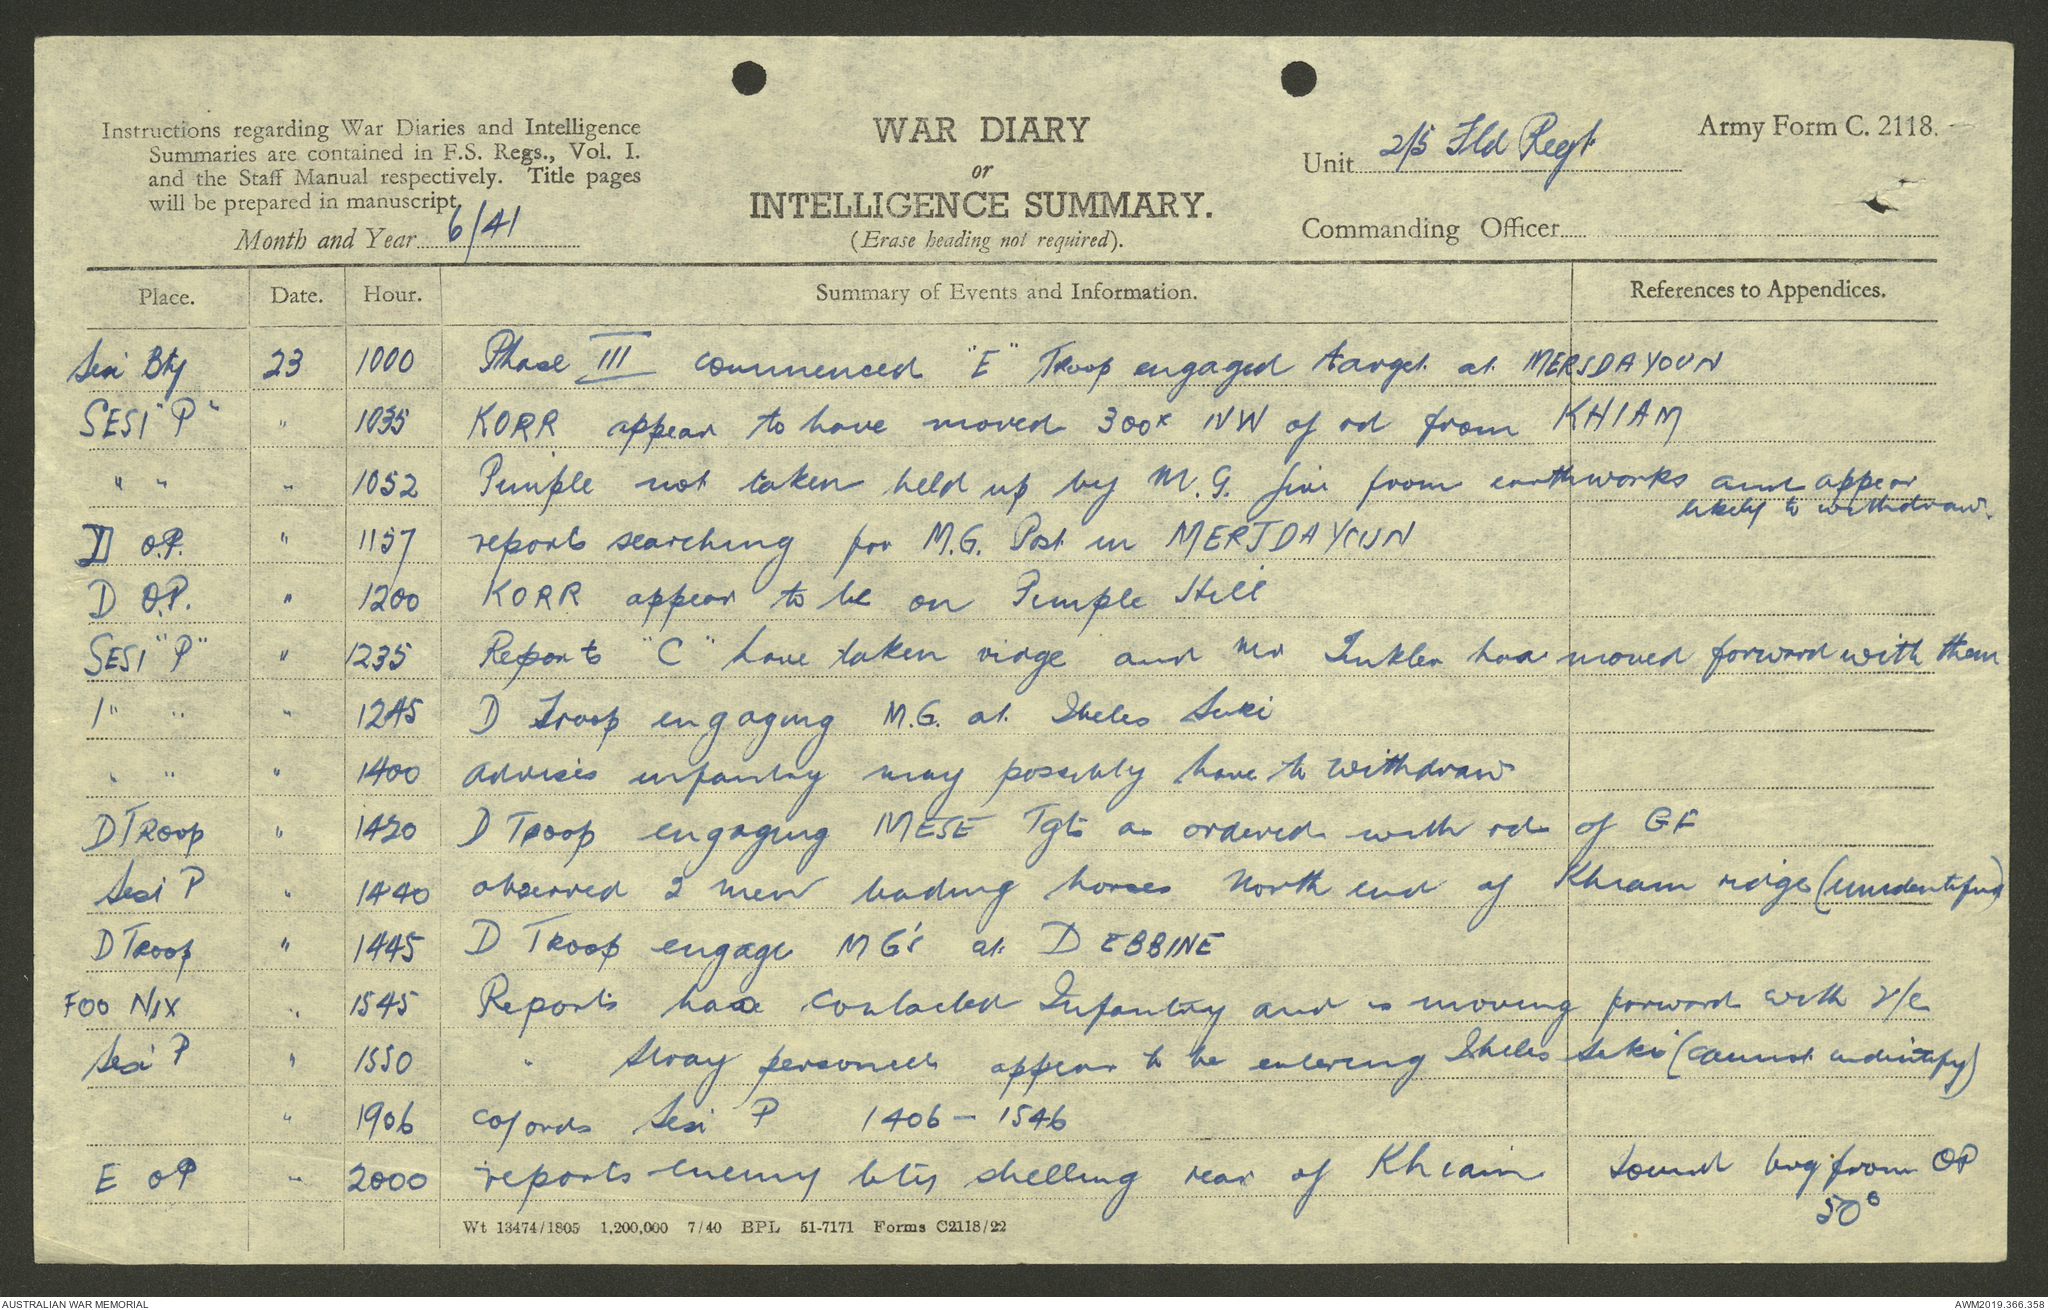 Instructions regarding War Diaries and Intelligence
Summaries are contained in F.S. Regs., Vol. I.
and the Staff Manual respectively. Title pages
will be prepared in manuscript.
Month and Year 6/41
WAR DIARY
or
INTELLIGENCE SUMMARY.
(Erase heading not required).
Unit 2/5 Fld Regt
Army Form C. 2118.
Commanding Officer
Place. Date. Hour. Summary of Events and Information. References to Appendices.
Sesi Bty 23 1000 Phase III commenced "E" Troop engaged target at MERJDAYOUN
SESI "P" " 1035 KORR appear to have moved 300x NW of rd from KHIAM
" " " 1052 Pimple not taken held up by M.G. fire from earthworks and appear
likely to withdraw.
D O.P. " 1157 reports searching for M.G. Post in MERJDAYOUN
D O.P. " 1200 KORR appear to be on Pimple Hill
SESI "P" " 1235 Reports "C" have taken ridge and Mr has moved forward with them
" " " 1245 D Troop engaging M.G. at Sheles Suki
" " " 1400 advises infantry may possibly have to withdraw
D TROOP " 1420 D Troop engaging MESE Tgts as ordered with rds of GF
Sesi P " 1440 observed 2 men leading horses North end of Khiam ridge (unidentified)
D Troop " 1445 D Troop engage MG's at DEBBINE
FOO NIX " 1545 Reports has contacted Infantry and is moving forward with r/c
Sesi P " 1550 " Stray personnel appear to be entering Sheles Suki (cannot indentify)
" 1906 cofords Sesi P 1406 - 1546
E OP " 2000 reports enemy bty shelling rear of Khiam sound brg from OP
50°
Wt 13474/1805 1,200,000 7/40 BPL 51-7171 Forms C2118/22
AUSTRALIAN WAR MEMORIAL
AWM2019.366.358